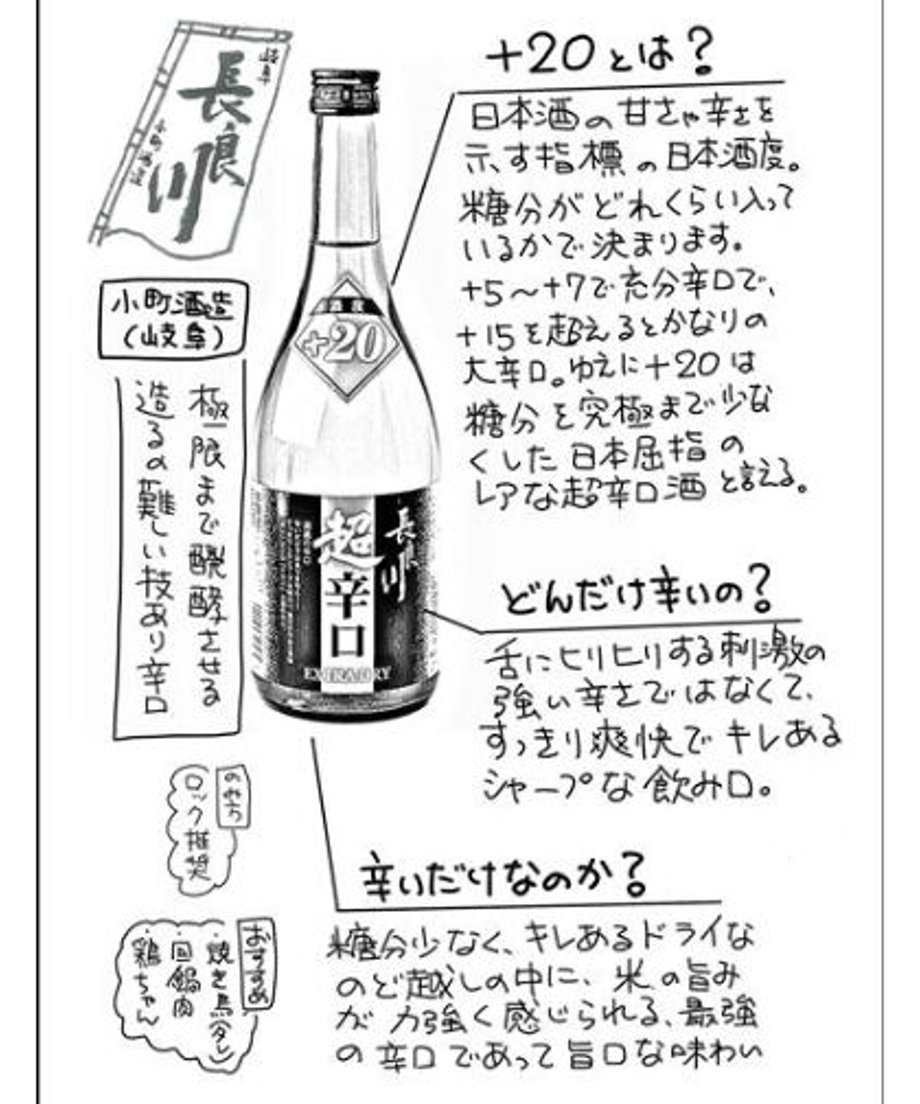 岐阜
長良川
小町酒造
小町酒造
(岐阜)
極限まで醗酵させる
造るの難しい技あり辛口
のみ方
ロック推奨
おすすめ
焼き鳥タレ
回鍋肉
鶏ちゃん
+20
長良川
超
辛口
EXTRA DRY
+20とは?
日本酒の甘さや辛さを
示す指標の日本酒度。
糖分がどれくらい入って
いるかで決まります。
+5〜+7で充分辛口で、
+15を超えるとかなりの
大辛口。ゆえに+20は
糖分を究極まで少な
くした日本屈指の
レアな超辛口酒と言える。
どんだけ辛いの?
舌にヒリヒリする刺激の
強い辛さではなくて、
すっきり爽快でキレある
シャープな飲み口。
辛いだけなのか?
糖分少なく、キレあるドライな
のど越しの中に、米の旨み
が力強く感じられる、最強
の辛口であって旨口な味わい